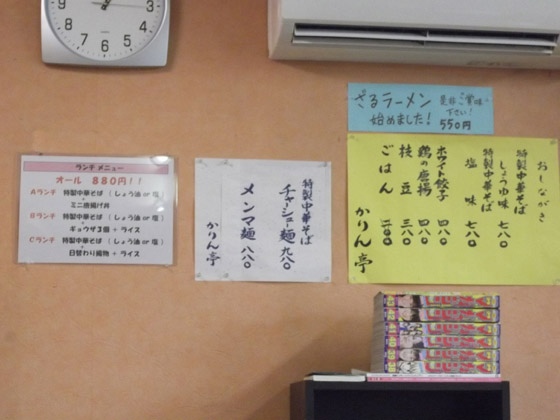 ざるラーメン 是非ご賞味下さい!
始めました! 550円
おしながき
特製中華そば
しょうゆ味 七八〇
特製中華そば
塩味 七八〇
ホワイト餃子 四八〇
鶏の唐揚 四八〇
枝豆 三八〇
ごはん 二〇〇
かりん亭
特製中華そば
チャーシュー麺 九八〇
メンマ麺 八八〇
かりん亭
ランチ メニュー
オール 880円!!
Aランチ 特製中華そば (しょう油 or 塩)
+
ミニ唐揚げ丼
Bランチ 特製中華そば (しょう油 or 塩)
+
ギョウザ3個 + ライス
Cランチ 特製中華そば (しょう油 or 塩)
+
日替わり織物 + ライス